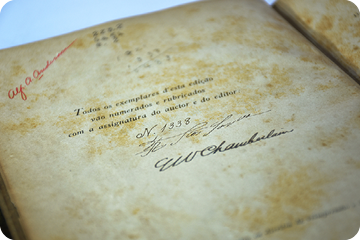 Alf. A. Anderson
Todos os exemplares d'esta edição
vão numerados e rubricados
com a assignatura do auctor e do editor.
N. 1338
GWChamberlain